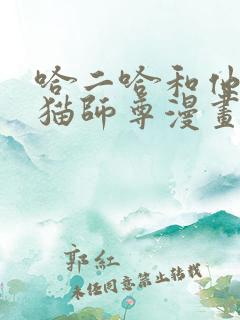 哈二哈和他
猫師尊漫畫
郭紅
未经同意禁止转载